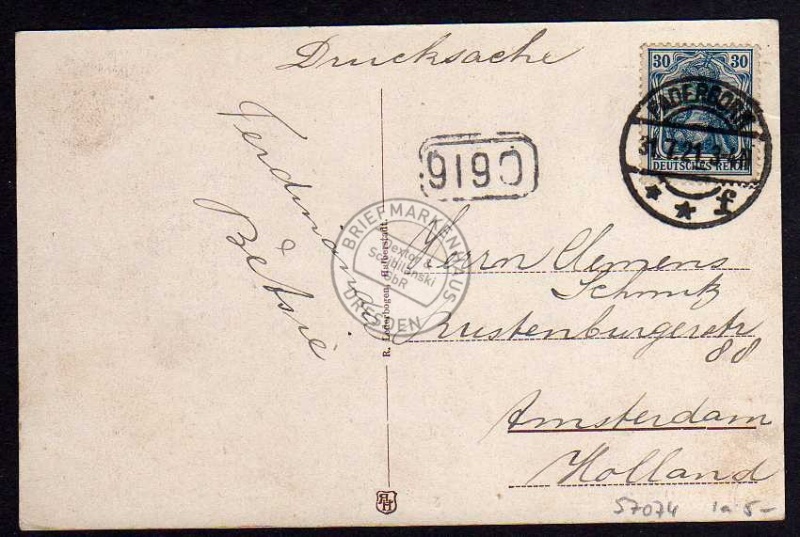 Drucksache
30 30
DEUTSCHES REICH
PADERBORN
31.7.21.3-4N
* * f
9190
Ferdinand
Betsie
Herrn Clemens
Schmitz
Rustenburgerstr
88
Amsterdam
Holland
R. Lederbogen, Halberstadt.
BRIEFMARKENHAUS
DRESDEN
GbR
57074 1a 5-